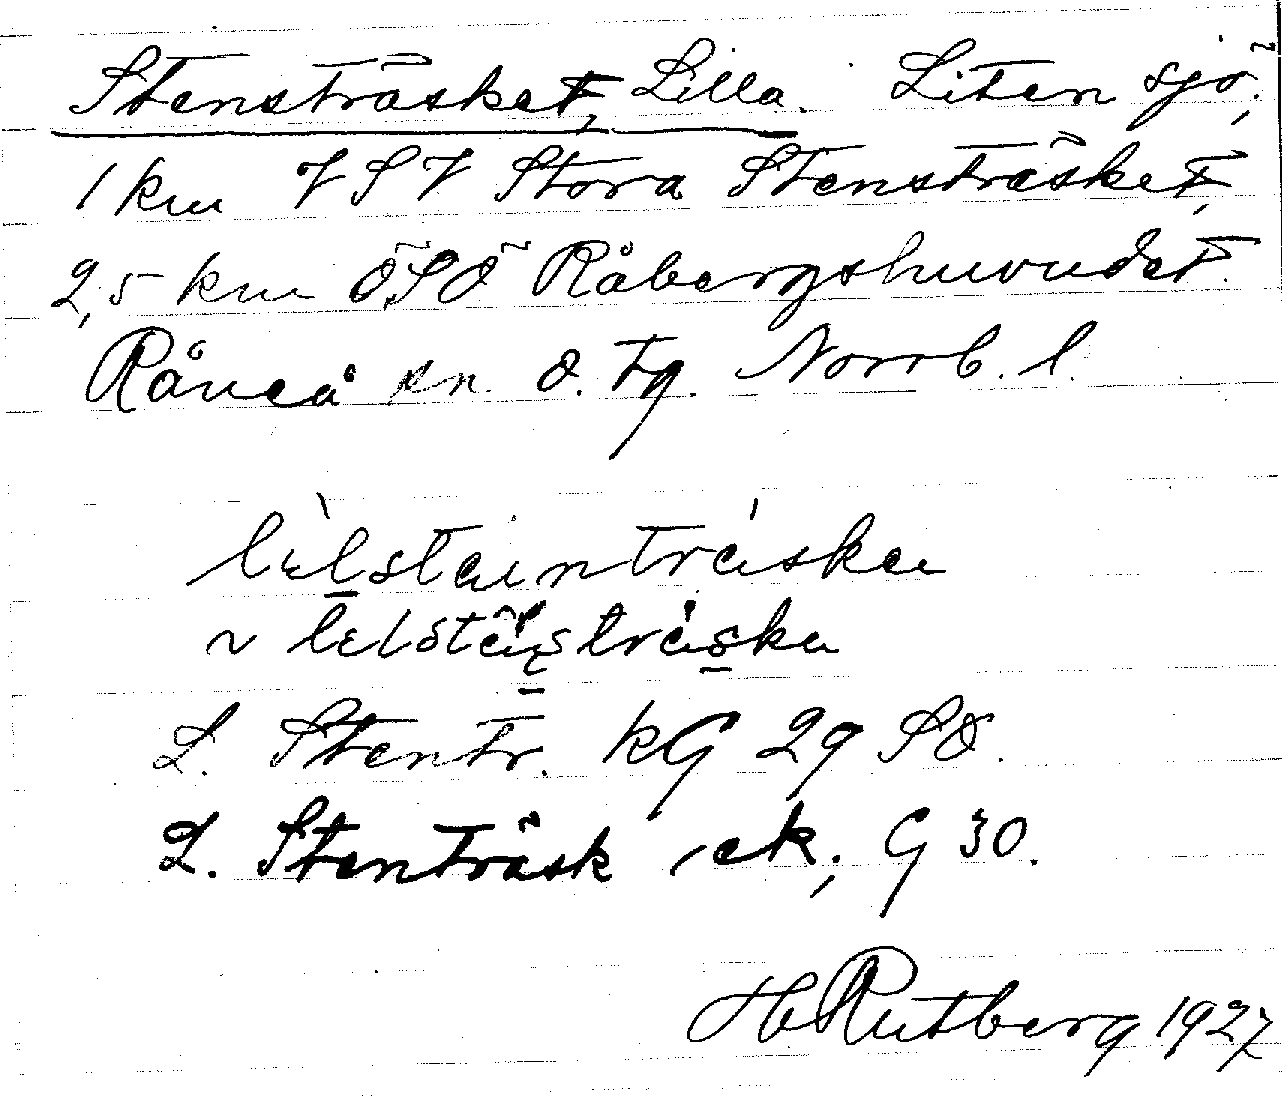 Stensträsket, Lilla. Liten sjö,
1 km VSV Stora Stensträsket,
2,5 km ÖSÖ Råbergshuvudet.
Råneå sn. o. tg. Norrb. l.
lilstainträska
~ lilstäinsträska
L. Stentr. KG 29 SO.
L. Stenträsk, ek, G 30.
H Rutberg 1927